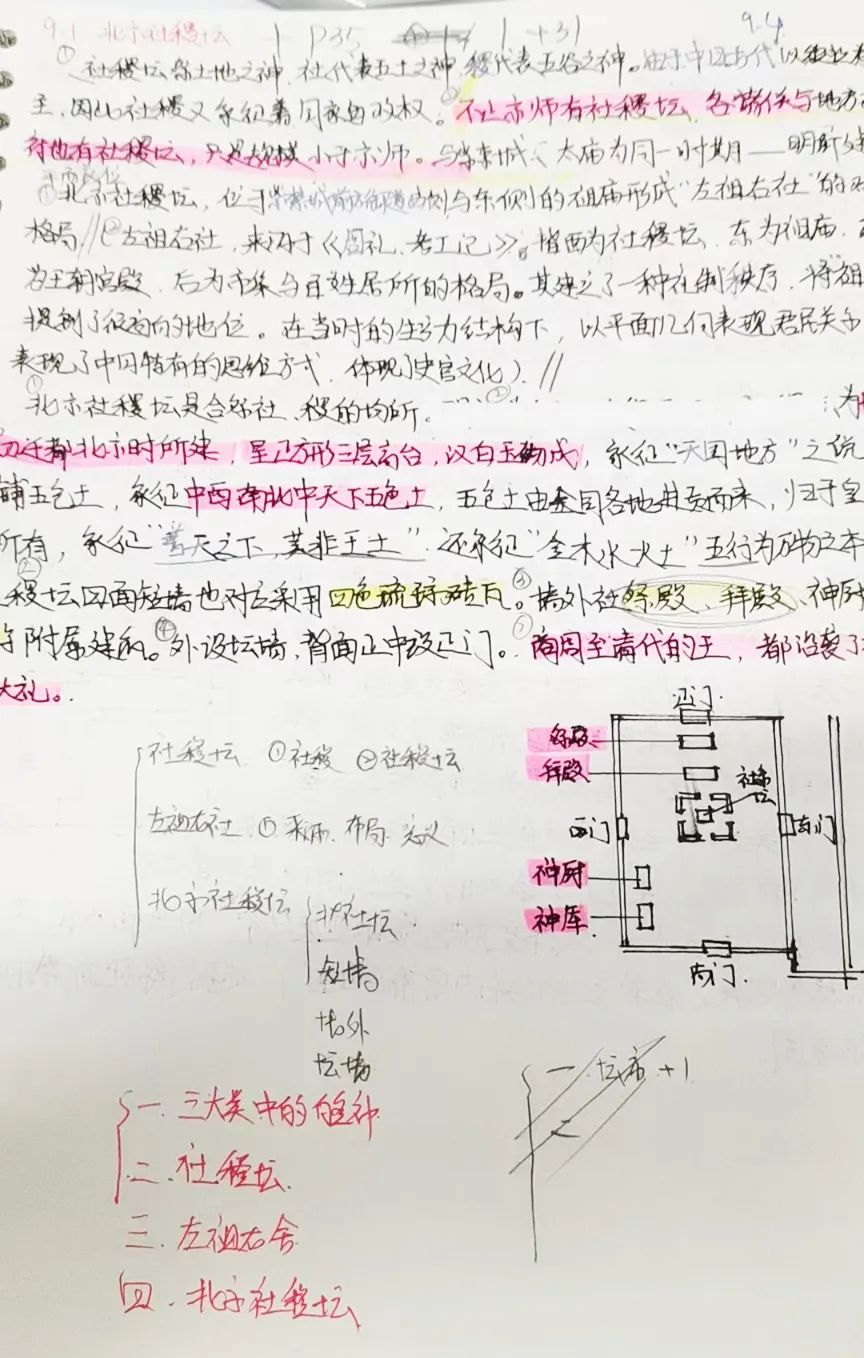 9.1 北京社稷坛 P35 1 +31 9.4
① 社稷坛祭土地之神,社代表五土之神,稷代表五谷之神。由于中国古代以农业
主,因此社稷又象征着国家的政权。不止京师有社稷坛,各诸侯与地方
府也有社稷坛,只是规模小于京师。与紫禁城、太庙为同一时期——明
北京社稷坛,位于紫禁城前 侧与东侧的祖庙形成“左祖右社”的
格局//左祖右社,来源于《周礼·考工记》。 西为社稷坛,东为祖庙,
为王朝宫殿,后为市集与百姓居所的格局。其建立了一种礼制秩序,将祖
提到了很高的地位。在当时的生 力结构下,以平面几何表现君民关
表现了中国特有的思维方式,体现 文化)。//
① 北京社稷坛是合祭社、稷的场所。② 为
迁都北京时所建,呈正方形三层高台,汉白玉砌成,象征“天圆地方”之说
铺五色土,象征中西南北中天下五色土,五色土由全国各地进贡而来,归于皇
所有,象征“普天之下,莫非王土”。还象征“金木水火土”五行为万物之本
稷坛四面短墙也对应采用四色琉璃砖瓦。③墙外社祭殿、拜殿、神厨
附属建筑。④外设坛墙,背面正中设正门。商周至清代的王,都沿袭了
大礼。
社稷坛 ①社稷 ②社稷坛
左祖右社 ① 来源、布局、意义
北京社稷坛
社坛
短墙
墙外
坛墙
正门
祭殿
拜殿
社稷坛
西门
东门
神厨
神库
南门
一 +1
二
一、三大类中的 种
二、社稷坛
三、左祖右舍
四、北京社稷坛